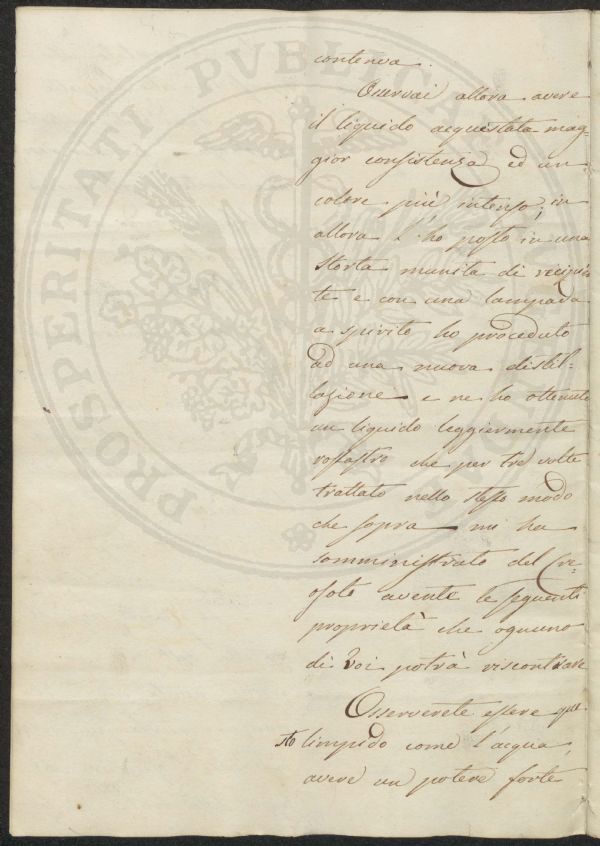 conteneva.
Osservai allora avere
il liquido acquistata mag=
gior consistenza ed un
colore più intenso; in
allora l'ho posto in una
storta munita di recipien
te e con una lampada
a spirito ho proceduto
ad una nuova distil=
lazione e ne ho ottenuto
un liquido leggiermente
rossastro che per tre volte
trattato nello stesso modo
che sopra mi ha
somministrato del Cre=
osoto avente le seguenti
proprietà che ognuno
di Voi potrà riscontrare
Osserverete essere que
sto limpido come l'acqua,
avere un potere forte
PROSPERITATI PVBLICAE